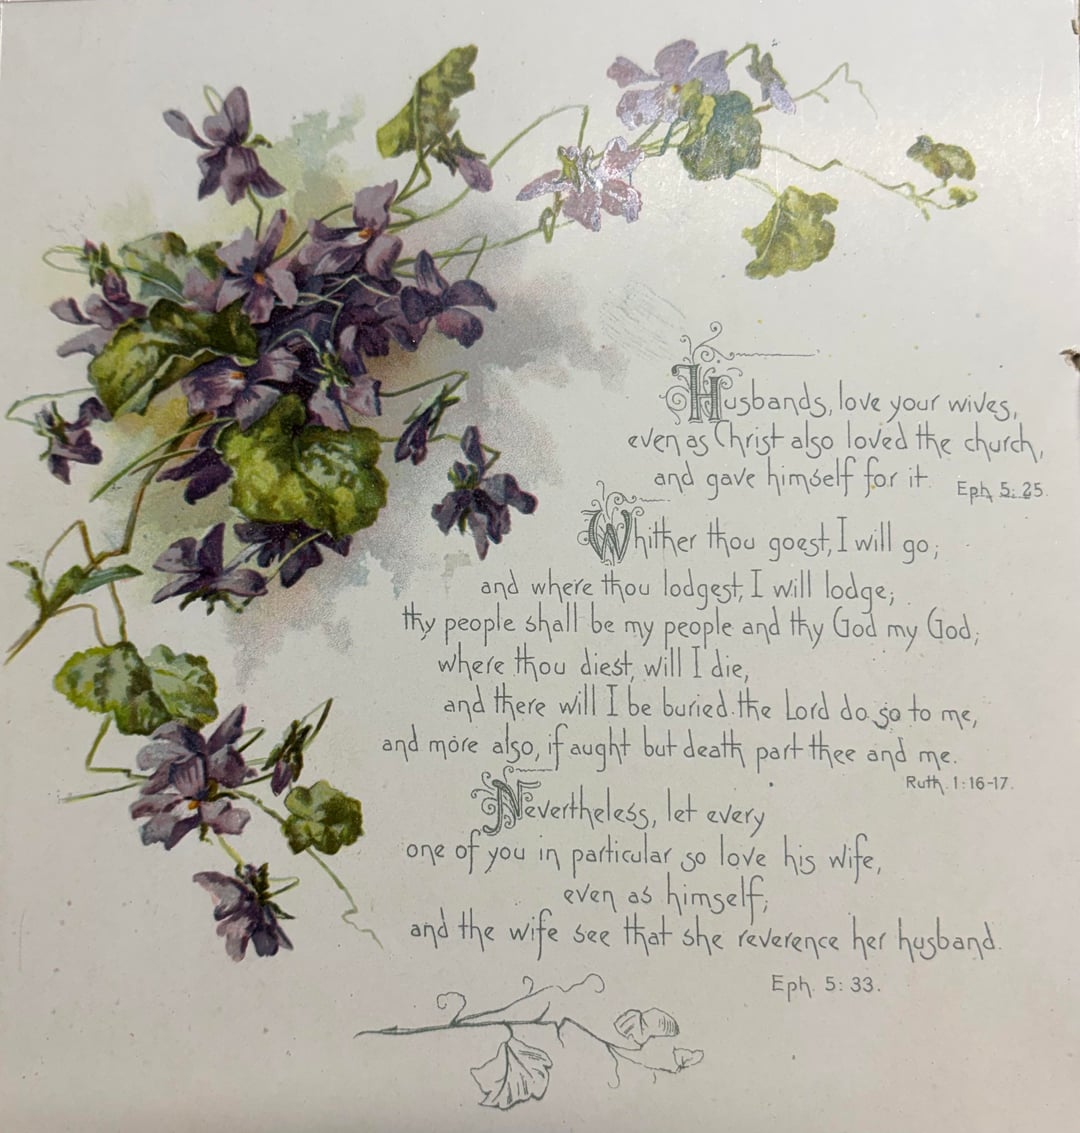 Husbands, love your wives,
even as Christ also loved the church,
and gave himself for it.
Eph. 5: 25.
Whither thou goest, I will go;
and where thou lodgest, I will lodge;
thy people shall be my people and thy God my God;
where thou diest, will I die,
and there will I be buried. the Lord do so to me,
and more also, if aught but death part thee and me.
Ruth. 1:16-17.
Nevertheless, let every
one of you in particular so love his wife,
even as himself;
and the wife see that she reverence her husband.
Eph. 5: 33.